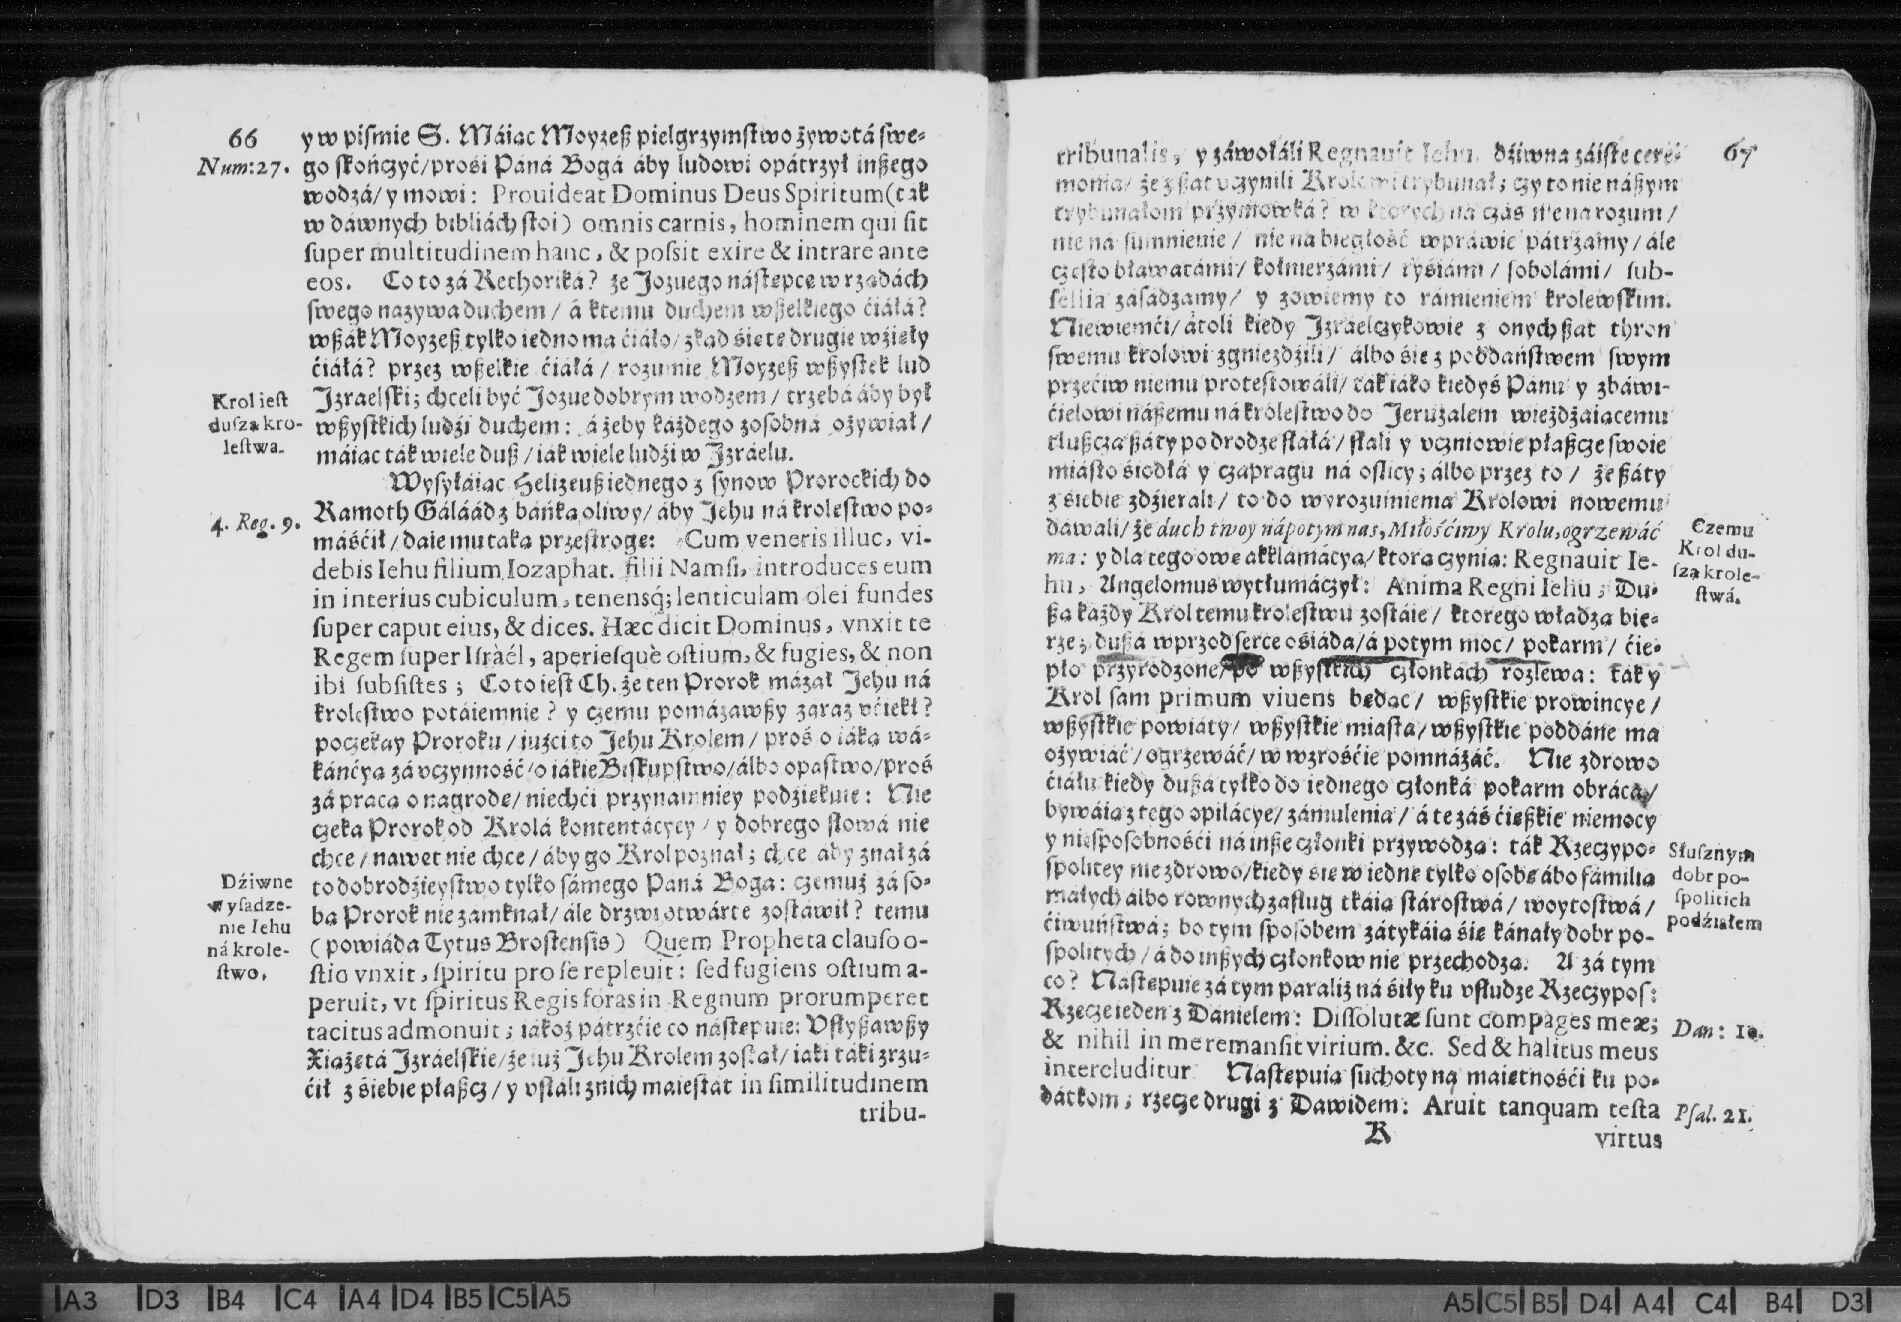 66
Num: 27.
y w piſmie S. Máiąc Moyzeß pielgrzymſtwo żywotá ſwe-
go ſkończyć/ prośi Páná Bogá áby ludowi opátrzył inßego
wodzá/ y mowi: Prouideat Dominus Deus Spiritum (tak
w dáwnych bibliách ſtoi) omnis carnis, hominem qui ſit
ſuper multitudinem hanc, & poſsit exire & intrare ante
eos. Co to zá Rethoriká? że Jozuego náſtępcę w rządách
ſwego nazywa duchem/ á ktemu duchem wßelkiego ćiáłá?
wßák Moyzeß tylko iedno ma ćiáło/ zkąd śię te drugie wźięły
ćiáłá? przez wßelkie ćiáłá/ rozumie Moyzeß wßyſtek lud
Izraelſki; chceli być Jozue dobrym wodzem/ trzebá áby był
wßyſtkich ludźi duchem: á żeby káżdego zoſobná ożywiał/
máiąc ták wiele duß/ iák wiele ludźi w Izráelu.
Krol ieſt
duſzą kro-
leſtwa.
Wyſyłáiąc Helizeuß iednego z ſynow Prorockich do
Ramoth Gáláád z báńką oliwy/ áby Jehu ná kroleſtwo po-
máśćił/ daie mu taką przeſtrogę: Cum veneris illuc, vi-
debis Iehu filium Iozaphat. filii Namſi, introduces eum
in interius cubiculum, tenensq́; lenticulam olei fundes
ſuper caput eius, & dices. Hæc dicit Dominus, vnxit te
Regem ſuper Iſràél, aperieſquè oſtium, & fugies, & non
ibi ſubſiſtes; Co to ieſt Ch. że ten Prorok mázał Jehu ná
kroleſtwo potáiemnie? y czemu pomázawßy zaraz vćiekł?
poczekay Proroku/ iużci to Jehu Krolem/ proś o iáką wá-
káncyą zá vczynność/ o iákie Biſkupſtwo/ álbo opaſtwo/ proś
zá pracą o nagrodę/ niechći przynamniey podźiękuie: Nie
czeka Prorok od Krolá kontentácyey/ y dobrego ſłowá nie
chce/ nawet nie chce/ áby go Krol poznał; chce aby znał zá
to dobrodźieyſtwo tylko ſámego Páná Boga: czemuż zá ſo-
bą Prorok nie zamknął/ ále drzwi otwárte zoſtáwił? temu
(powiáda Tytus Broſtenſis) Quem Propheta clauſo o-
ſtio vnxit, ſpiritu pro ſe repleuit: ſed fugiens oſtium a-
peruit, vt ſpiritus Regis foras in Regnum prorumperet
tacitus admonuit; iákoż pátrzćie co náſtępuie: Vſłyßawßy
Xiążętá Izráelſkie/ że iuż Jehu Krolem zoſtał/ iáki táki zrzu-
ćił z śiebie płaßcz/ y vſłáli z nich maieſtat in ſimilitudinem
tribu-
4. Reg. 9.
Dźiwne
wyſadze-
nie Iehu
ná krole-
ſtwo.
67
tribunalis, y záwołáli Regnauit Iehu. dźiwna záiſte cere-
monia/ że z ßat vczynili Krolowi trybunał; czy to nie náßym
trybunałom przymowká? w ktorych ná czás nie na rozum/
nie na ſumnienie/ nie na biegłość wpráwie pátrzamy/ ále
często błáwatámi/ kołnierzámi/ ryśiámi/ ſobolámi/ ſub-
ſellia záſádzamy/ y zowiemy to rámieniem krolewſkim.
Niewiemći/ átoli kiedy Izraelczykowie z onych ßat thron
ſwemu krolowi zgniezdźili/ álbo śię z poddáńſtwem ſwym
przećiw niemu proteſtowáli/ ták iáko kiedyś Pánu y zbáwi-
ćielowi náßemu ná kroleſtwo do Jeruzalem wieżdżaiącemu
tłußcza ßáty po drodze ſłáłá/ ſłáli y vczniowie płaßcze ſwoie
miáſto śiodłá y czapragu ná oſlicy; álbo przez to/ że ßáty
z śiebie zdźierali/ to do wyrozumienia Krolowi nowemu
dawali/ że duch twoy nápotym nas, Miłośćiwy Krolu, ogrzewáć
ma: y dla tego owę akklamácyą/ ktorą czynią: Regnauit Ie-
hu, Angelomus wytłumáczył: Anima Regni Iehu; Du-
ßą każdy Krol temu kroleſtwu zoſtáie/ ktorego władzą bie-
rze; dußá wprzod ſerce ośiáda/ á potym moc/ pokarm/ ćie-
pło przyrodzone/ po wßyſtkich członkách rozlewa: ták y
Krol ſam primum viuens będąc/ wßyſtkie prowincye/
wßyſtkie powiáty/ wßyſtkie miaſta/ wßyſtkie poddáne ma
ożywiáć/ ogrzewáć/ w wzrośćie pomnáżáć. Nie zdrowo
ćiáłu kiedy dußá tylko do iednego członká pokarm obráca/
bywáią z tego opilácye/ zámulenia/ á te záś ćięßkie niemocy
y nieſpoſobnośći ná inße członki przywodzą: ták Rzeczypo-
ſpolitey nie zdrowo/ kiedy śię w iednę tylko oſobę ábo fámilią
máłych álbo rownych zaſług tkáią ſtároſtwá/ woytoſtwá/
ćiwuńſtwá; bo tym ſpoſobem zátykáią śię kánały dobr po-
ſpolitych/ á do inßych członkow nie przechodzą. A zá tym
co? Náſtępuie zá tym paraliż ná śiły ku vſłudze Rzeczypoſ:
Rzecze ieden z Dánielem: Diſſolutæ ſunt compages meæ;
& nihil in me remanſit virium. &c. Sed & halitus meus
intercluditur. Náſtępuią ſuchoty ná maiętnośći ku po-
dátkom; rzecze drugi z Dawidem: Aruit tanquam teſta
K
virtus
Czemu
Krol du-
ſzą krole-
ſtwá.
Słuſznym
dobr po-
ſpolitich
podźiałem
Dan: 10.
Pſal. 21.